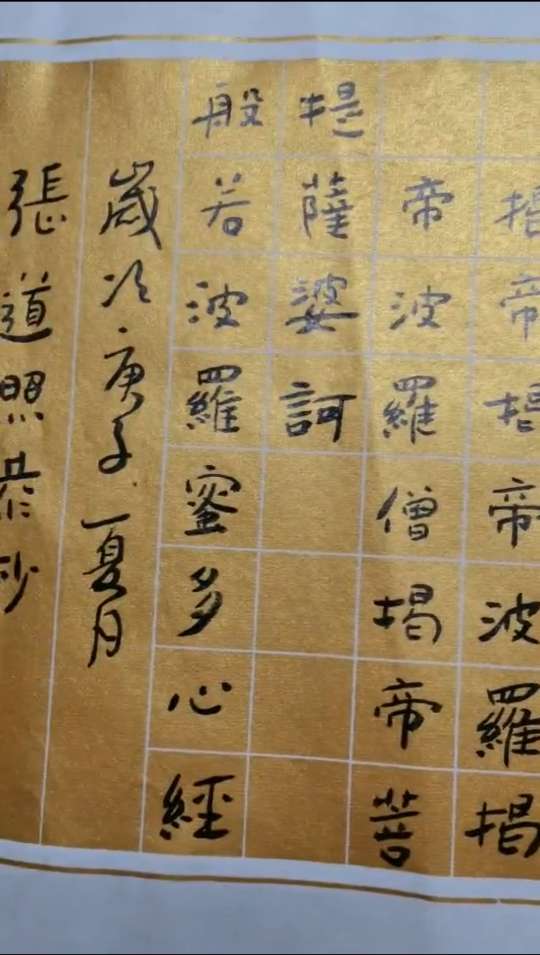 揭帝揭帝波羅揭
帝波羅僧揭帝菩
提薩婆訶
般若波羅蜜多心經
歲次庚子夏月
張道照恭抄